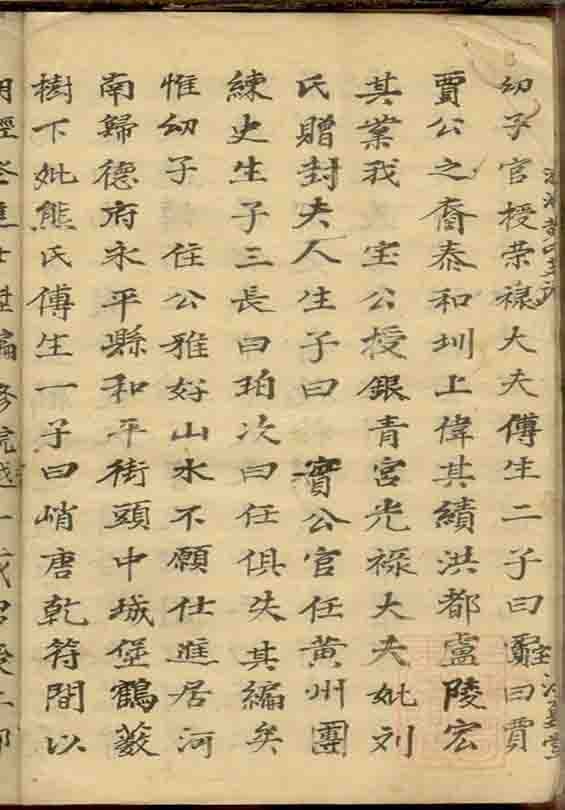 幼子官授荣禄大夫傅生二子曰曰賈
賈公之裔泰和圳上偉其績洪都盧陵宏
其業我宝公授銀青宫光禄大夫妣刘
氏贈封夫人生子曰實公官任黄州團
練史生子三長曰珀次曰任俱失其編矣
惟幼子住公雅好山水不願仕進居河
南歸德府永平縣和平街頭中城堡鶴薮
樹下妣熊氏傅生一子曰峭唐乾符間以